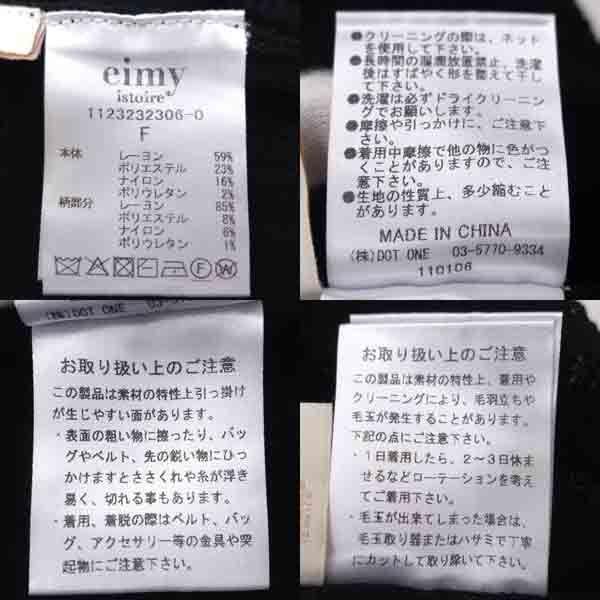 eimy
istoire
1123232306-0
F
本体 レーヨン 59%
ポリエステル 23%
ナイロン 16%
ポリウレタン 2%
柄部分 レーヨン 85%
ポリエステル 8%
ナイロン 6%
ポリウレタン 1%
●クリーニングの際は、ネット
を使用して下さい。
●長時間の濕潤放置禁止、洗濯
後はすばやく形を整えて干し
て下さい。
●洗濯は必ずドライクリーニン
グでお願いします。
●摩擦や引っかけに、ご注意下
さい。
●着用中摩擦で他の物に色がつ
くことがありますので、ご注
意下さい。
●生地の性質上、多少縮むこと
があります。
MADE IN CHINA
(株)DOT ONE 03-5770-9334
110106
(株)DOT ONE
お取り扱い上のご注意
この製品は素材の特性上引っ掛け
が生じやすい面があります。
・表面の粗い物に擦ったり、バッ
グやベルト、先の鋭い物にひっ
かけますとささくれや糸が浮き
易く、切れる事もあります。
・着用、着脱の際はベルト、バッ
グ、アクセサリー等の金具や突
起物にご注意下さい。
お取り扱い上のご注意
この製品は素材の特性上、着用や
クリーニングにより、毛羽立ちや
毛玉が発生することがあります。
下記の点にご注意下さい。
・1日着用したら、2〜3日休ま
せるなどローテーションを考え
てご着用下さい。
・毛玉が出来てしまった場合は、
毛玉取り器またはハサミで丁寧
にカットして取り除いて下さい。